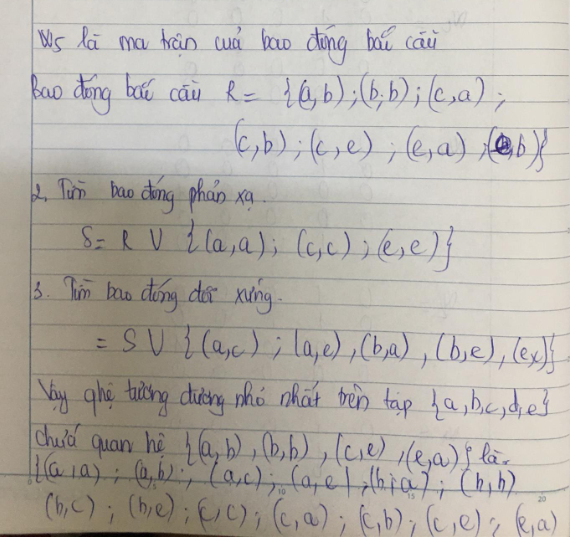 W5 là ma trận cuả bao đóng bắc cầu
Bao đóng bắc cầu R = {(a,b) ; (b,b) ; (c,a) ;
(c,b) ; (c,e) ; (e,a) ; (e,b)}
2, Tìm bao đóng phản xạ.
S = R U {(a,a) ; (c,c) ; (e,e)}
3. Tìm bao đóng đối xứng.
= S U {(a,c) ; (a,e) , (b,a) , (b,e) , (e,c)}
Vậy qhệ tương đương nhỏ nhất trên tập {a,b,c,d,e}
chứa quan hệ {(a,b) , (b,b) , (c,e) , (e,a)} là.
{(a,a) ; (a,b) ; (a,c) ; (a,e) , (b,a) ; (b,b)
(b,c) ; (b,e) ; (c,c) ; (c,a) ; (c,b) ; (c,e) ; (e,a)
10 15 20